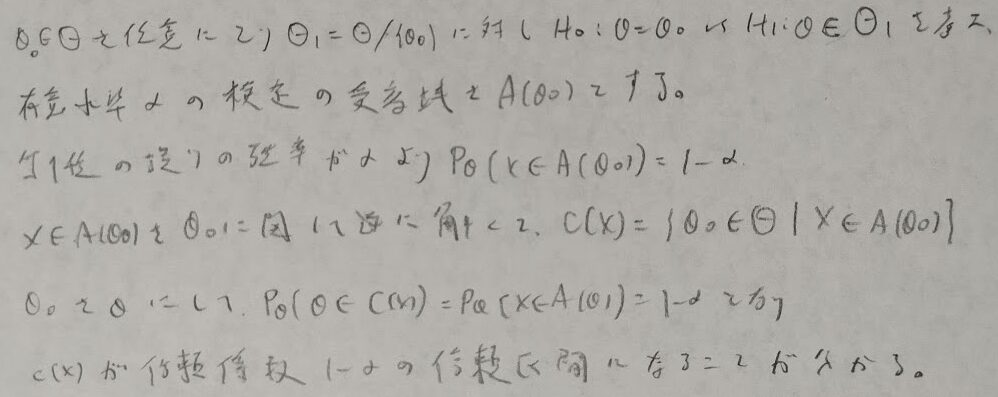 θ₀∈Θを任意にとりΘ₁=Θ/{θ₀}に対しH₀:θ=θ₀ vs H₁:θ∈Θ₁を考え、
有意水準αの検定の受容域をA(θ₀)とする。
第1種の誤りの確率がαよりPθ(X∈A(θ₀))=1-α.
X∈A(θ₀)をθ₀に関して逆に解くと、C(X)={θ₀∈Θ|X∈A(θ₀)}
θ₀をθにして、Pθ(θ∈C(X))=Pθ(X∈A(θ))=1-αとなり
C(X)が信頼係数1-αの信頼区間になることが分かる。